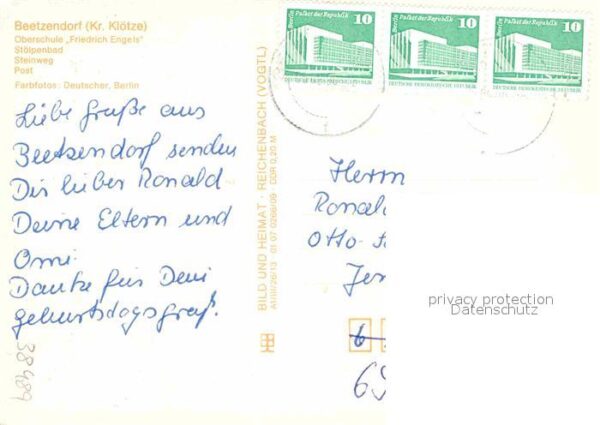 Beetzendorf (Kr. Klötze)
Oberschule „Friedrich Engels"
Stölpenbad
Steinweg
Post
Farbfotos: Deutscher, Berlin
Liebe Grüße aus
Beetzendorf senden
Dir lieber Ronald
Deine Eltern und
Omi.
Danke für Deni
geburtsdagsgruß.
38489
BILD UND HEIMAT · REICHENBACH (VOGTL)
A1/III/26/13 01 07 0266/09 DDR 0,20 M
Berlin Palast der Republik 10
DEUTSCHE DEMOKRATISCHE REPUBLIK
Berlin Palast der Republik 10
DEUTSCHE DEMOKRATISCHE REPUBLIK
Berlin Palast der Republik 10
DEUTSCHE DEMOKRATISCHE REPUBLIK
Herrn
Ronal
Otto-
Jen
privacy protection
Datenschutz
6